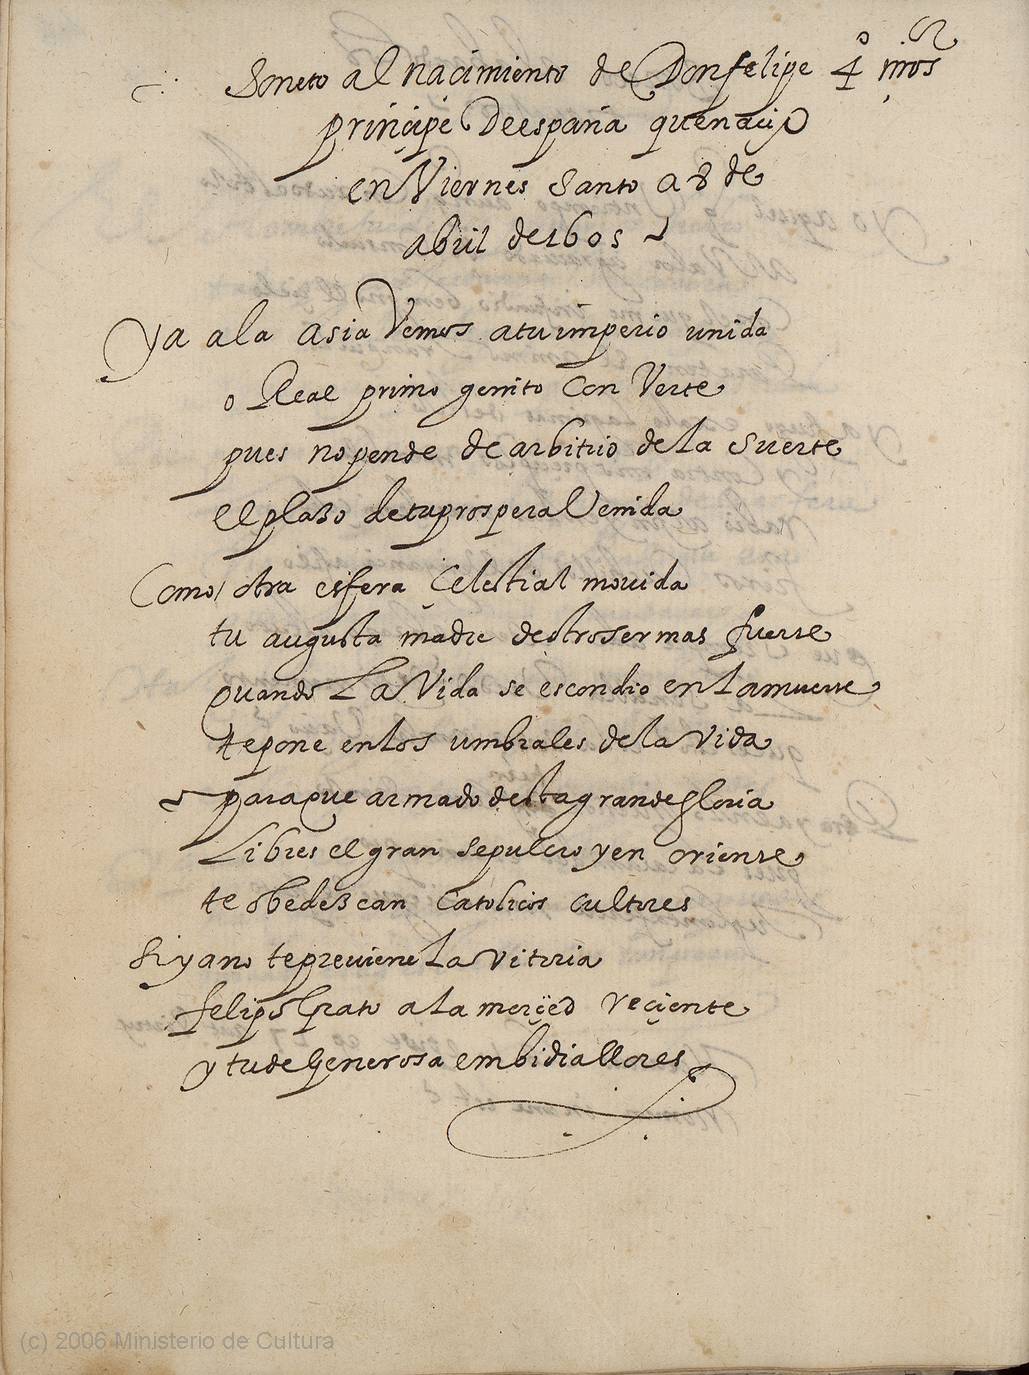 Soneto al nacimiento de Don felipe 4º nros
principe De españa que nacio
en Viernes Santo a 8 de
abril de 1605
ya a la asia Vemos a tu imperio unida
o Real primo genito con Verte
pues no pende de arbitrio de la Suerte
el plazo de tu prospera Venida
Como otra esfera Celestial mouida
tu augusta madre de otro ser mas fuerte
quando La Vida se escondio en la muerte
te pone en los umbrales de la vida
para que armado desta grande gloria
Libres el gran sepulcro y en oriente
te obedezcan Catolicos cultores
Si ya no te preuiene La vitoria
felipo grato a la merçed reçiente
y tu de generosa embidia llores
(c) 2006 Ministerio de Cultura